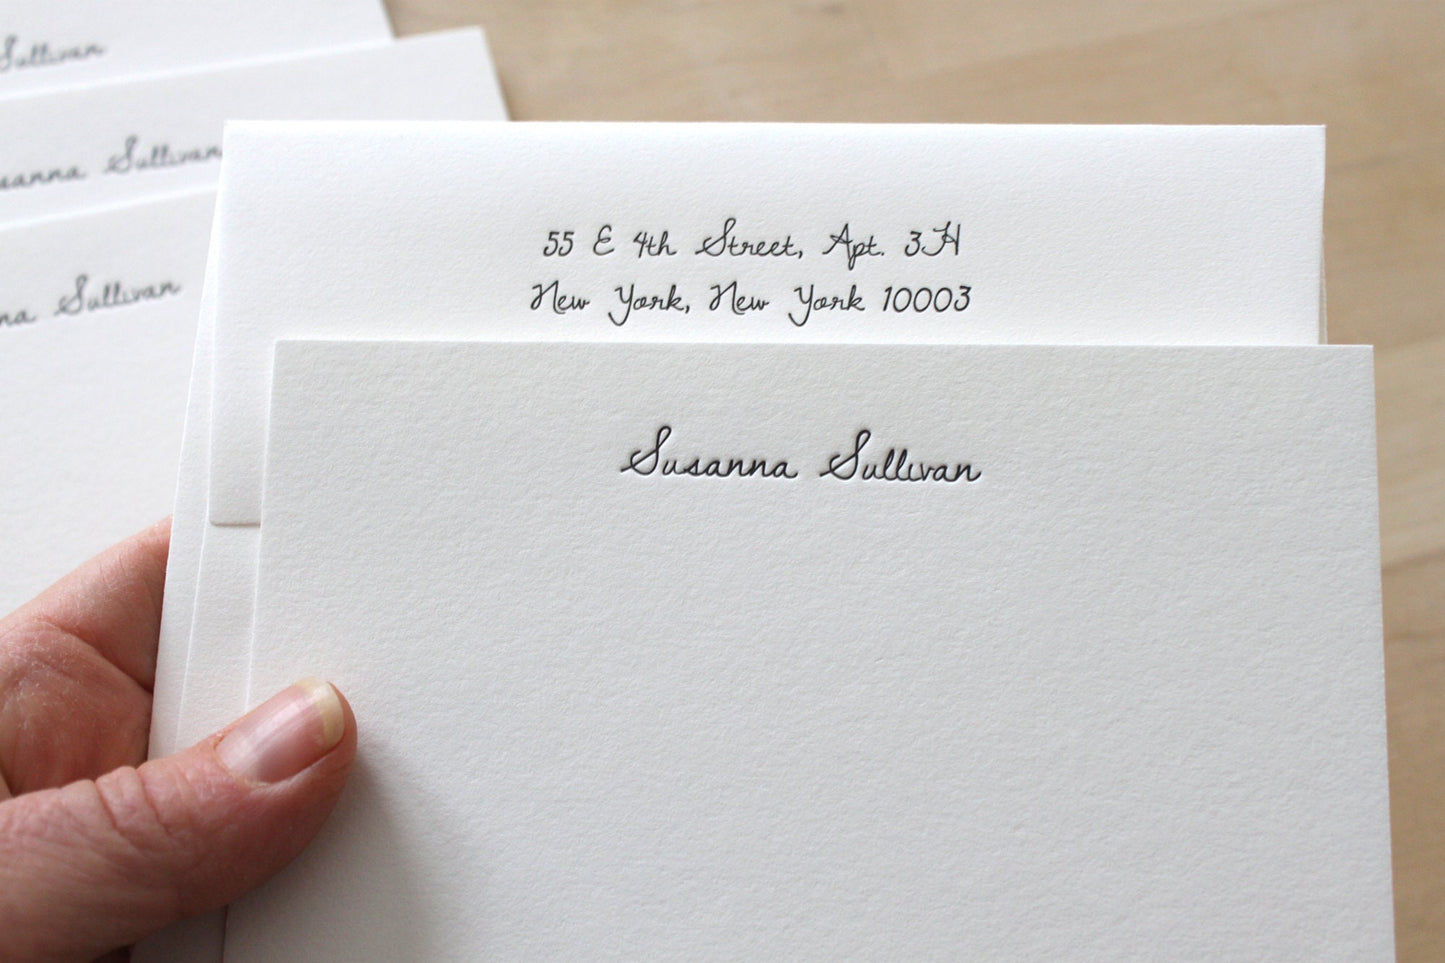 Sullivan
sanna Sullivan
na Sullivan
55 E 4th Street, Apt. 3H
New York, New York 10003
Susanna Sullivan